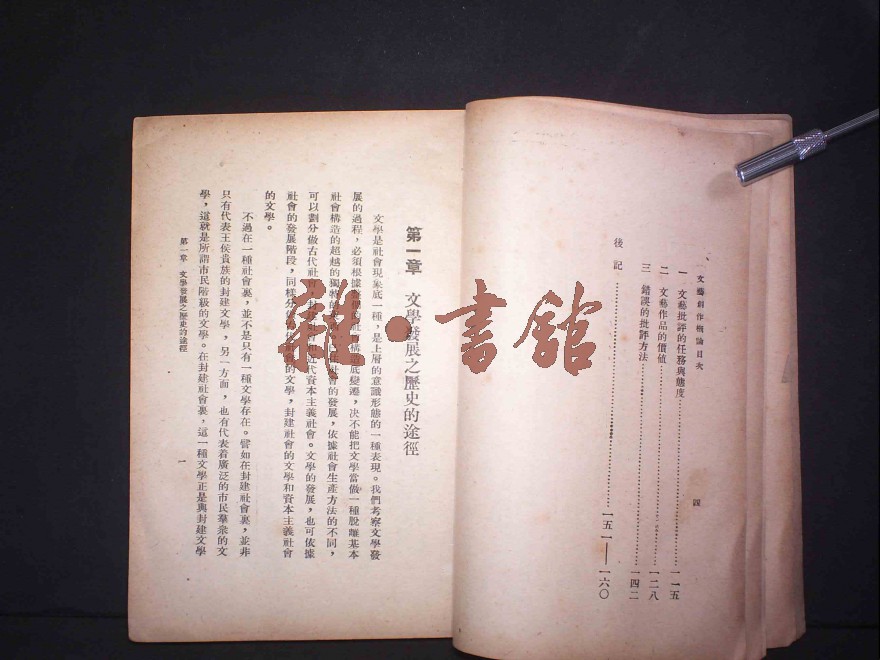 文藝創作概論目次
四
一 文藝批評的任務與態度……一一五
二 文藝作品的價値……一二八
三 錯誤的批評方法……一四二
後記……一五一—一六〇
第一章 文學發展之歷史的途徑
文學是社會現象底一種，是上層的意識形態的一種表現。我們考察文學發
展的過程，必須根據 社 構造底變遷，决不能把文學當做一種脫離基本
社會構造的超越的獨特的 社會的發展，依據社會生產方法的不同，
可以劃分做古代社會，封建社會和近代資本主義社會。文學的發展，也可依據
社會的發展階段，同樣分做 社會的文學，封建社會的文學和資本主義社會
的文學。
不過在一種社會裏，並不是只有一種文學存在。譬如在封建社會裏，並非
只有代表王侯貴族的封建文學，另一方面，也有代表着廣泛的市民羣衆的文
學，這就是所謂市民階級的文學。在封建社會裏，這一種文學正是與封建文學
第一章 文學發展之歷史的途徑
一
雜·書館